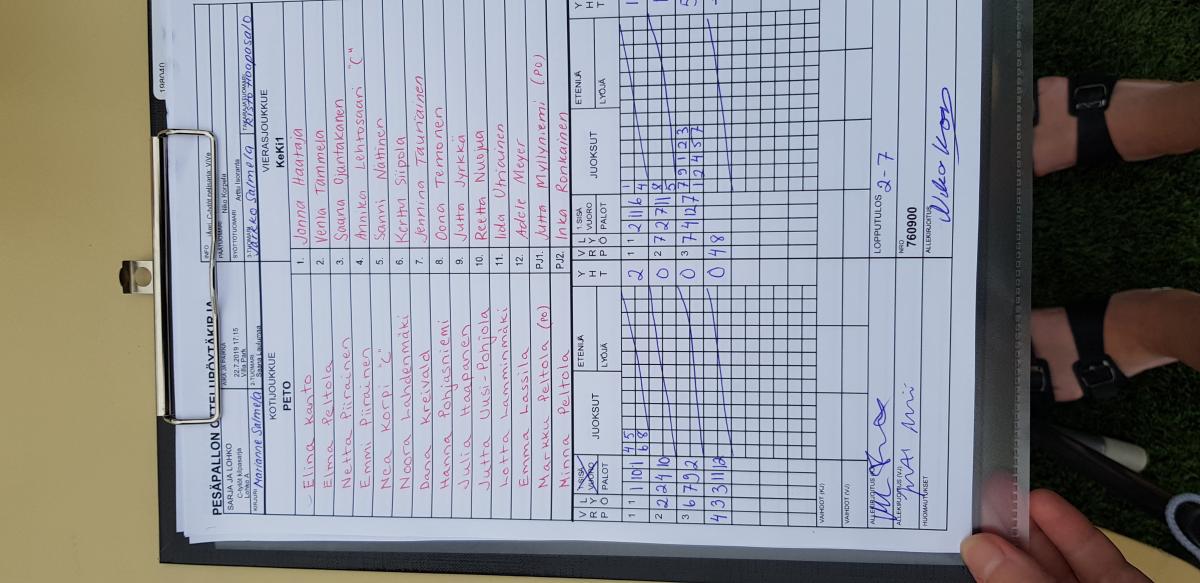 198040
PESÄPALLON OTTELUPÖYTÄKIRJA
SARJA JA LOHKO
C-tytöt kilpasarja
Lohko A
AIKA JA PAIKKA
22.7.2019 17:15
Villa Park
INFO
Jäsri, C-tytöt neljäsarja, ViVa
PÄÄTUOMARI
Niko Korpela
SYÖTTÖTUOMARI
Arttu Isoranta
KIRJURI Marianne Salmela
2-TUOMARI
3-TUOMARI Jarkko Salmela
TAKARAJATUOMARI Risto Haapasalo
KOTIJOUKKUE
PETO
VIERASJOUKKUE
KeKi1
Elina Kanto
Elma Peltola
Netta Piirainen
Emmi Piirainen
Nea Korpi "C"
Noora Lahdenmäki
Dana Kreivald
Hanna Pohjasniemi
Julia Haapanen
Jutta Uusi-Pohjola
Lotta Lamminmäki
Emma Lassila
Markku Peltola (PO)
Minna Peltola
1. Jonna Haataja
2. Venla Tammela
3. Saana Ojantakanen
4. Annika Lehtosaari "C"
5. Sanni Nättinen
6. Kerttu Siipola
7. Jennina Tauriainen
8. Oona Termonen
9. Jutta Jyrkkä
10. Reetta Nuojua
11. Iida Utriainen
12. Adele Meyer
PJ1. Jutta Myllyniemi (PO)
PJ2. Inka Ronkainen
V R P
L Y Ö
1.SISÄ VUORO
PALOT
JUOKSUT
ETENIJÄ
LYÖJÄ
Y H T
V R P
L Y Ö
1.SISÄ VUORO
PALOT
JUOKSUT
ETENIJÄ
LYÖJÄ
Y H T
1 1 1 10 1 4 5 2
6 8
2 2 2 4 10 0
3 6 7 9 2 0
4 3 3 11 12 0
1 1 2 11 6 1
4
2 7 2 7 11 8
5
3 7 4 12 7 7 9 1 2 3
1 2 4 5 7
4 8
VAIHDOT (KJ)
VAIHDOT (VJ)
ALLEKIRJOITUS (KJ)
ALLEKIRJOITUS (VJ)
HUOMAUTUKSET
LOPPUTULOS 2 - 7
NRO
760900
ALLEKIRJOITUS